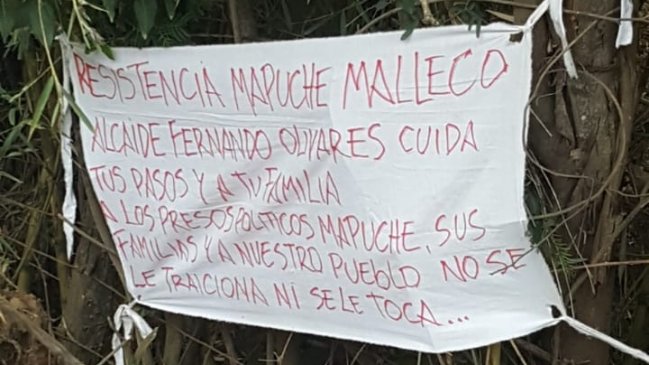 RESISTENCIA MAPUCHE MALLECO
ALCALDE FERNANDO OLIVARES CUIDA
TUS PASOS Y A TU FAMILIA
A LOS PRESOS POLITICOS MAPUCHE, SUS
FAMILIAS Y A NUESTRO PUEBLO NO SE
LE TRAICIONA NI SE LE TOCA...